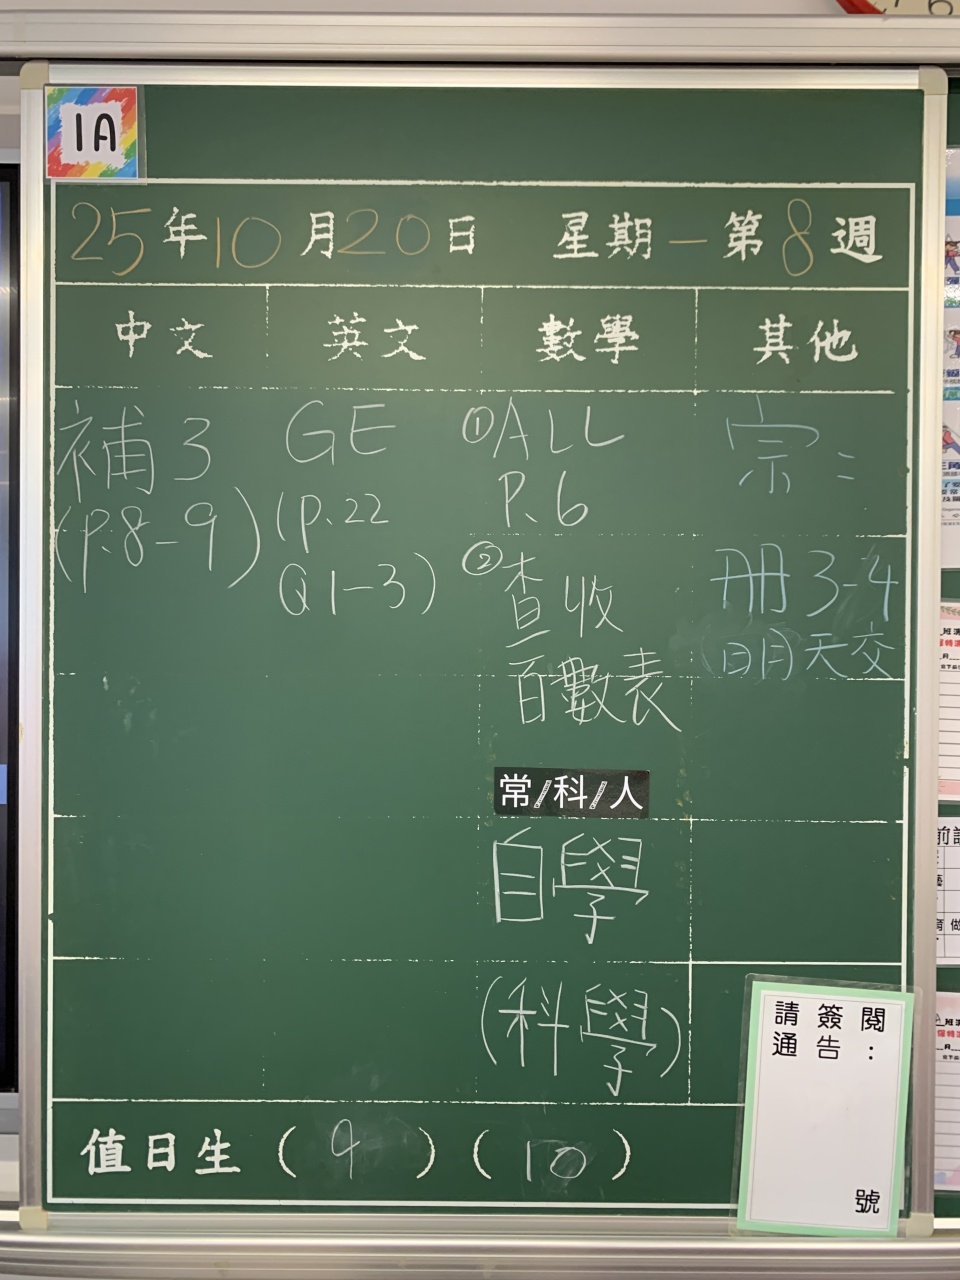 1A
25年10月20日 星期一 第8週
中文 英文 數學 其他
補3
(p.8-9)
GE
(p.22
Q1-3)
①ALL
P.6
②查收
百數表
常/科/人
自學
(科學)
宗:
冊3-4
(明天交
請簽閱
通告:
號
值日生(9)(10)